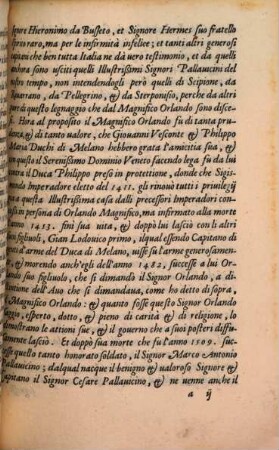 gnore Hieronimo da Busseto, et Signore Hermes suo fratello
raro, ma per le infirmità infelice; et tanti altri generosi
che ben tutta Italia ne dà uero testimonio, et da quelli
sono usciti quelli Illustrissimi Signori Pallauicini del
nostro tempo, non intendendogli però quelli di Scipione, da
da Pellegrino, & da Sterponiso, perche da altri
questo legnaggio che dal Magnifico Orlando sono disce
Hora al proposito il Magnifico Orlando fù di tanta pru
nza, & di tanto ualore, che Giouanni Vesconte & Philippo
Maria Duchi di Melano hebbero grata l'amicitia sua, &
questo il Serenissimo Dominio Veneto facendo lega fù da lui
il Duca Philippo preso in protettione, donde che Sigis
mondo Imperadore eletto del 1411. gli rinouò tutti i priuilegij
questa Illustrissima casa dalli precessori Imperadori con
in persona di Orlando Magnifico, ma infirmato alla morte
anno 1453. finì sua uita, & doppò lui lasciò con li altri
figliuoli, Gian Lodouico primo, il qual essendo Capitano di
arme del Duca di Melano, uisse sù l'arme generosamen-
& morendo anch'egli dell'anno 1482, successe à lui Or
suo figliuolo, che si dimandò il Signor Orlando, à di
tione dell'Auo che si dimandaua, come hò detto di sopra,
Magnifico Orlando: & quanto fosse questo Signor Orlando
saggio, esperto, dotto, & pieno di carità & di religione, lo
mostrano le attioni sue, & il gouerno che a suoi posteri diffusa
mente lasciò. Et doppò sua morte che fù l'anno 1509. suc
cesse quello tanto honorato soldato, il Signor Marco Antonio
Pallauicino; dal qual nacque il benigno & ualoroso Signore &
Capitano il Signor Cesare Pallauicino, & ne uenne anche il
a ij